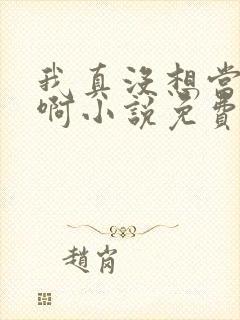 我真沒想當
啊小說免費
趙肖